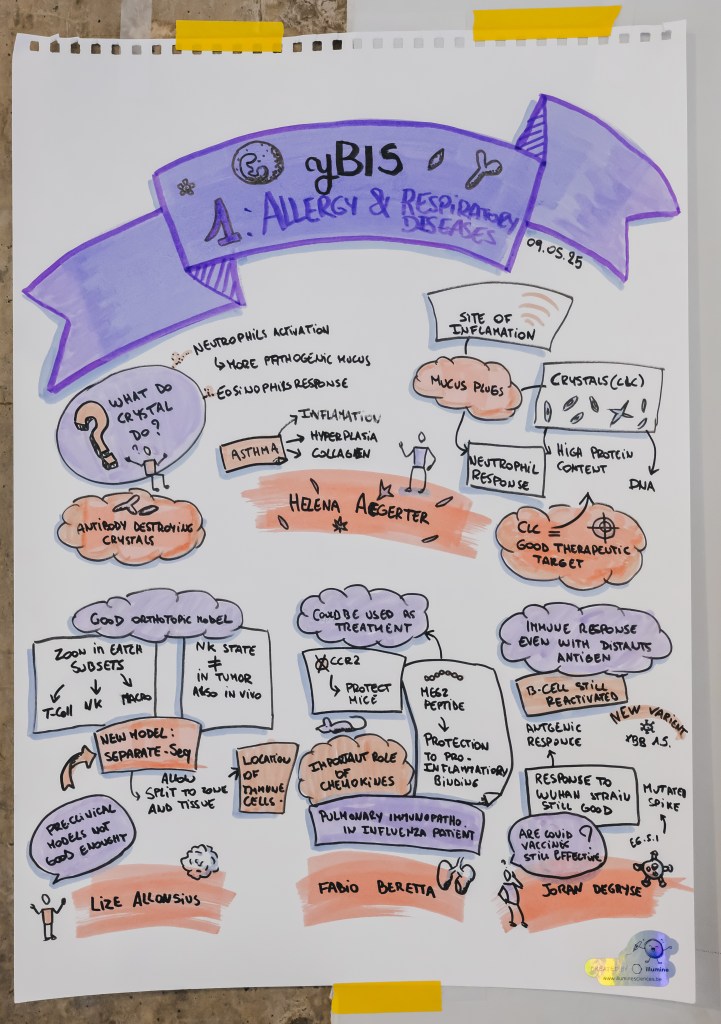 yBIS
1: ALLERGY & RESPIRATORY
DISEASES
09.05.25
NEUTROPHILS ACTIVATION
↳ MORE PATHOGENIC MUCUS
EOSINOPHILS RESPONSE
WHAT DO
CRYSTAL
DO?
?
ANTIBODY DESTROYING
CRYSTALS
ASTHMA
INFLAMATION
HYPERPLASIA
COLLAGEN
HELENA AEGERTER
SITE OF
INFLAMATION
MUCUS PLUGS
CRYSTALS (CLC)
NEUTROPHIL
RESPONSE
HIGH PROTEIN
CONTENT
DNA
CLC =
GOOD THERAPEUTIC
TARGET
GOOD ORTHOTOPIC MODEL
ZOON IN EATCH
SUBSETS
T-Cell NK MACRO
NK STATE
≠
IN TUMOR
ALSO IN VIVO
NEW MODEL:
SEPARATE-Seq
ALLOW
SPLIT TO ZONE
AND TISSUE
LOCATION
OF
IMMUNE
CELLS.
PRE-CLINICAL
MODELS NOT
GOOD ENOUGHT
LIZE ALLONSIUS
COULD BE USED AS
TREATMENT
CCR2
↳ PROTECT
MICE
MEG2
PEPTIDE
↓
PROTECTION
TO PRO-
INFLAMMATIORY
BINDING
IMPORTANT ROLE
OF
CHEMOKINES
PULMONARY IMMUNOPATHO
IN INFLUENZA PATIENT
FABIO BERETTA
IMMUNE RESPONSE
EVEN WITH DISTANTS
ANTIGEN
B-CELL STILL
REACTIVATED
ANTGENIC
RESPONCE
NEW VARIENT
XBB 1.5.
RESPONSE TO
WUHAN STRAIN
STILL GOOD
MUTATED
SPIKE
EG.5.1
ARE COVID ?
VACCINES
STILL EFFECTIVE
JORAN DEGRYSE
illumine